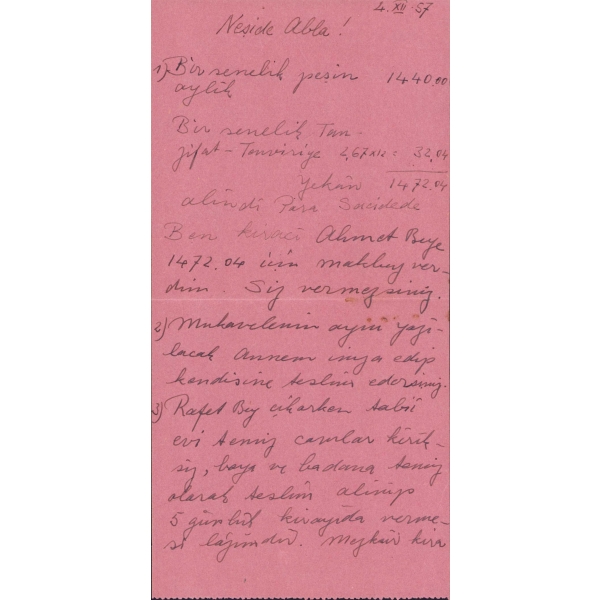 4.XII.57
Neşide Abla!
1) Bir senelik peşin 1440.00
aylık
Bir senelik Tan-
zifat - Tenviriye 2,67x12 = 32.04
Yekûn 1472.04
alındı Para Sacidede
Ben kiracı Ahmet Beye
1472.04 için makbuz ver-
dim. Siz vermezsiniz.
2) Mukavelenin aynı yazı-
lacak Annem imza edip
kendisine teslim edersiniz.
3) Rafet Bey çıkarken tabiî
evi temiz camlar kırık-
sız, boya ve badana temiz
olarak teslim alınıp
5 günlük kirayıda verme-
si lâzımdır. Mezkûr kira